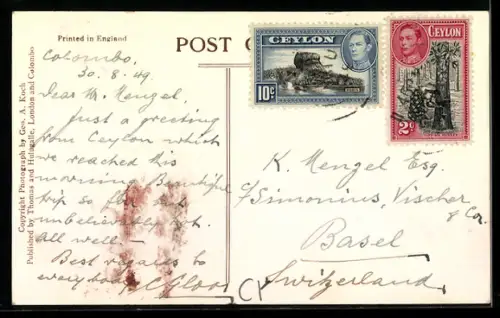 Printed in England
POST C
Colombo,
30.8.49
Dear Mr. Menzel,
Just a greeting
from Ceylon which
we reached this
morning. Beautiful
trip so far but
unbelievably hot.
All well –
Best regards to
everybody
K. Menzel Esq.
c/o Simonius, Vischer
& Co.
Basel
Switzerland
Copyright Photograph by Geo. A. Koch
Published by Thomas and Hulugalle, London and Colombo
CEYLON
10c
CEYLON
2c